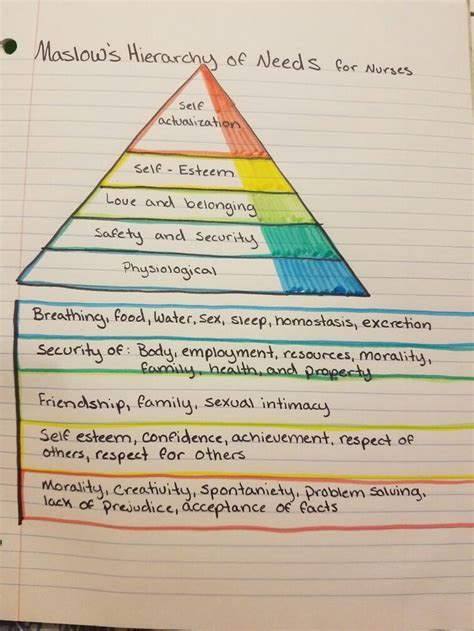 Maslow's Hierarchy of Needs for Nurses
Self
actualization
Self - Esteem
Love and belonging
Safety and Security
Physiological
Breathing, food, water, sex, sleep, homostasis, excretion
Security of: Body, employment, resources, morality,
family, health, and property
Friendship, family, sexual intimacy
Self esteem, confidence, achievement, respect of
others, respect for others
Morality, Creativity, Spontaniety, Problem Solving,
lack of Prejudice, acceptance of facts